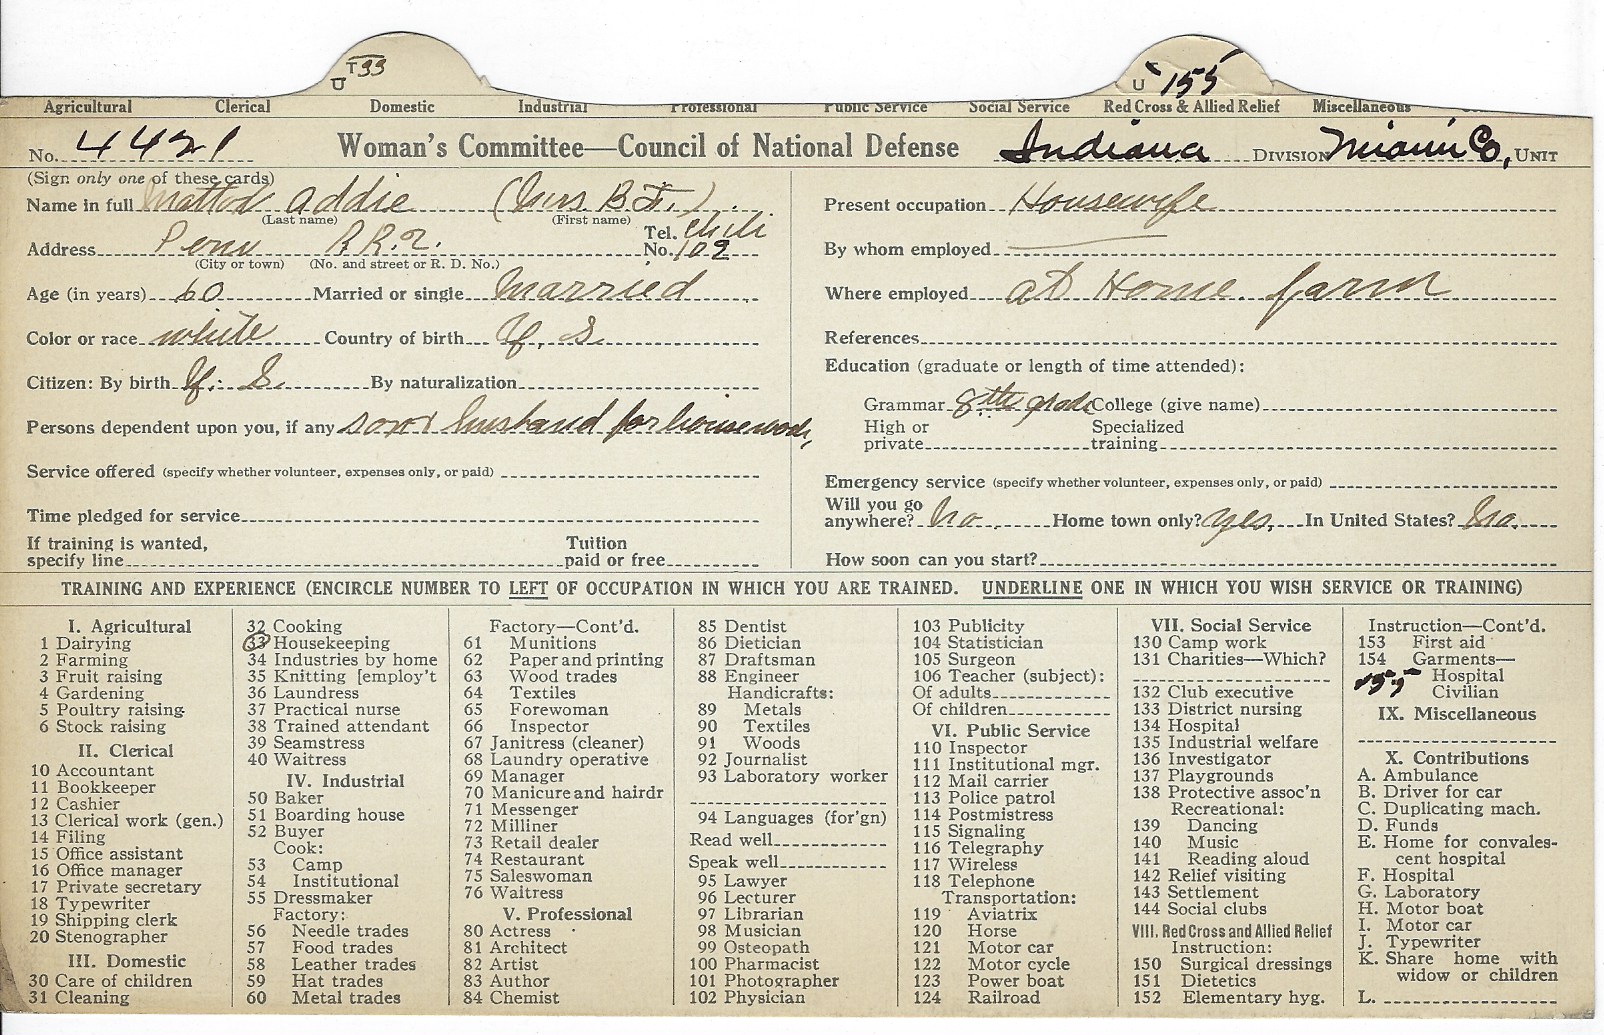 T 33
U
U 155
Agricultural Clerical Domestic Industrial Professional Public Service Social Service Red Cross & Allied Relief Miscellaneous
No. 4421 Woman's Committee—Council of National Defense Indiana DIVISION Miami Co, UNIT
(Sign only one of these cards)
Name in full Addie (Mrs. B.F.)
(Last name) (First name)
Address Peru R.R.2. Tel. No. Chili 102
(City or town) (No. and street or R. D. No.)
Age (in years) 60 Married or single Married
Color or race white Country of birth U. S
Citizen: By birth U. S. By naturalization
Persons dependent upon you, if any son & husband for housework,
Service offered (specify whether volunteer, expenses only, or paid)
Time pledged for service
If training is wanted, specify line Tuition paid or free
Present occupation Housewife
By whom employed
Where employed at Home. farm
References
Education (graduate or length of time attended):
Grammar 8th grade College (give name)
High or private Specialized training
Emergency service (specify whether volunteer, expenses only, or paid)
Will you go anywhere? No. Home town only? yes. In United States? No.
How soon can you start?
TRAINING AND EXPERIENCE (ENCIRCLE NUMBER TO LEFT OF OCCUPATION IN WHICH YOU ARE TRAINED. UNDERLINE ONE IN WHICH YOU WISH SERVICE OR TRAINING)
I. Agricultural
1 Dairying
2 Farming
3 Fruit raising
4 Gardening
5 Poultry raising
6 Stock raising
II. Clerical
10 Accountant
11 Bookkeeper
12 Cashier
13 Clerical work (gen.)
14 Filing
15 Office assistant
16 Office manager
17 Private secretary
18 Typewriter
19 Shipping clerk
20 Stenographer
III. Domestic
30 Care of children
31 Cleaning
32 Cooking
33 Housekeeping
34 Industries by home
35 Knitting [employ't
36 Laundress
37 Practical nurse
38 Trained attendant
39 Seamstress
40 Waitress
IV. Industrial
50 Baker
51 Boarding house
52 Buyer
Cook:
53 Camp
54 Institutional
55 Dressmaker
Factory:
56 Needle trades
57 Food trades
58 Leather trades
59 Hat trades
60 Metal trades
Factory—Cont'd.
61 Munitions
62 Paper and printing
63 Wood trades
64 Textiles
65 Forewoman
66 Inspector
67 Janitress (cleaner)
68 Laundry operative
69 Manager
70 Manicure and hairdr
71 Messenger
72 Milliner
73 Retail dealer
74 Restaurant
75 Saleswoman
76 Waitress
V. Professional
80 Actress
81 Architect
82 Artist
83 Author
84 Chemist
85 Dentist
86 Dietician
87 Draftsman
88 Engineer
Handicrafts:
89 Metals
90 Textiles
91 Woods
92 Journalist
93 Laboratory worker
94 Languages (for'gn)
Read well
Speak well
95 Lawyer
96 Lecturer
97 Librarian
98 Musician
99 Osteopath
100 Pharmacist
101 Photographer
102 Physician
103 Publicity
104 Statistician
105 Surgeon
106 Teacher (subject):
Of adults
Of children
VI. Public Service
110 Inspector
111 Institutional mgr.
112 Mail carrier
113 Police patrol
114 Postmistress
115 Signaling
116 Telegraphy
117 Wireless
118 Telephone
Transportation:
119 Aviatrix
120 Horse
121 Motor car
122 Motor cycle
123 Power boat
124 Railroad
VII. Social Service
130 Camp work
131 Charities—Which?
132 Club executive
133 District nursing
134 Hospital
135 Industrial welfare
136 Investigator
137 Playgrounds
138 Protective assoc'n
Recreational:
139 Dancing
140 Music
141 Reading aloud
142 Relief visiting
143 Settlement
144 Social clubs
VIII. Red Cross and Allied Relief
Instruction:
150 Surgical dressings
151 Dietetics
152 Elementary hyg.
Instruction—Cont'd.
153 First aid
154 Garments—
Hospital
155 Civilian
IX. Miscellaneous
X. Contributions
A. Ambulance
B. Driver for car
C. Duplicating mach.
D. Funds
E. Home for convales-
cent hospital
F. Hospital
G. Laboratory
H. Motor boat
I. Motor car
J. Typewriter
K. Share home with
widow or children
L.